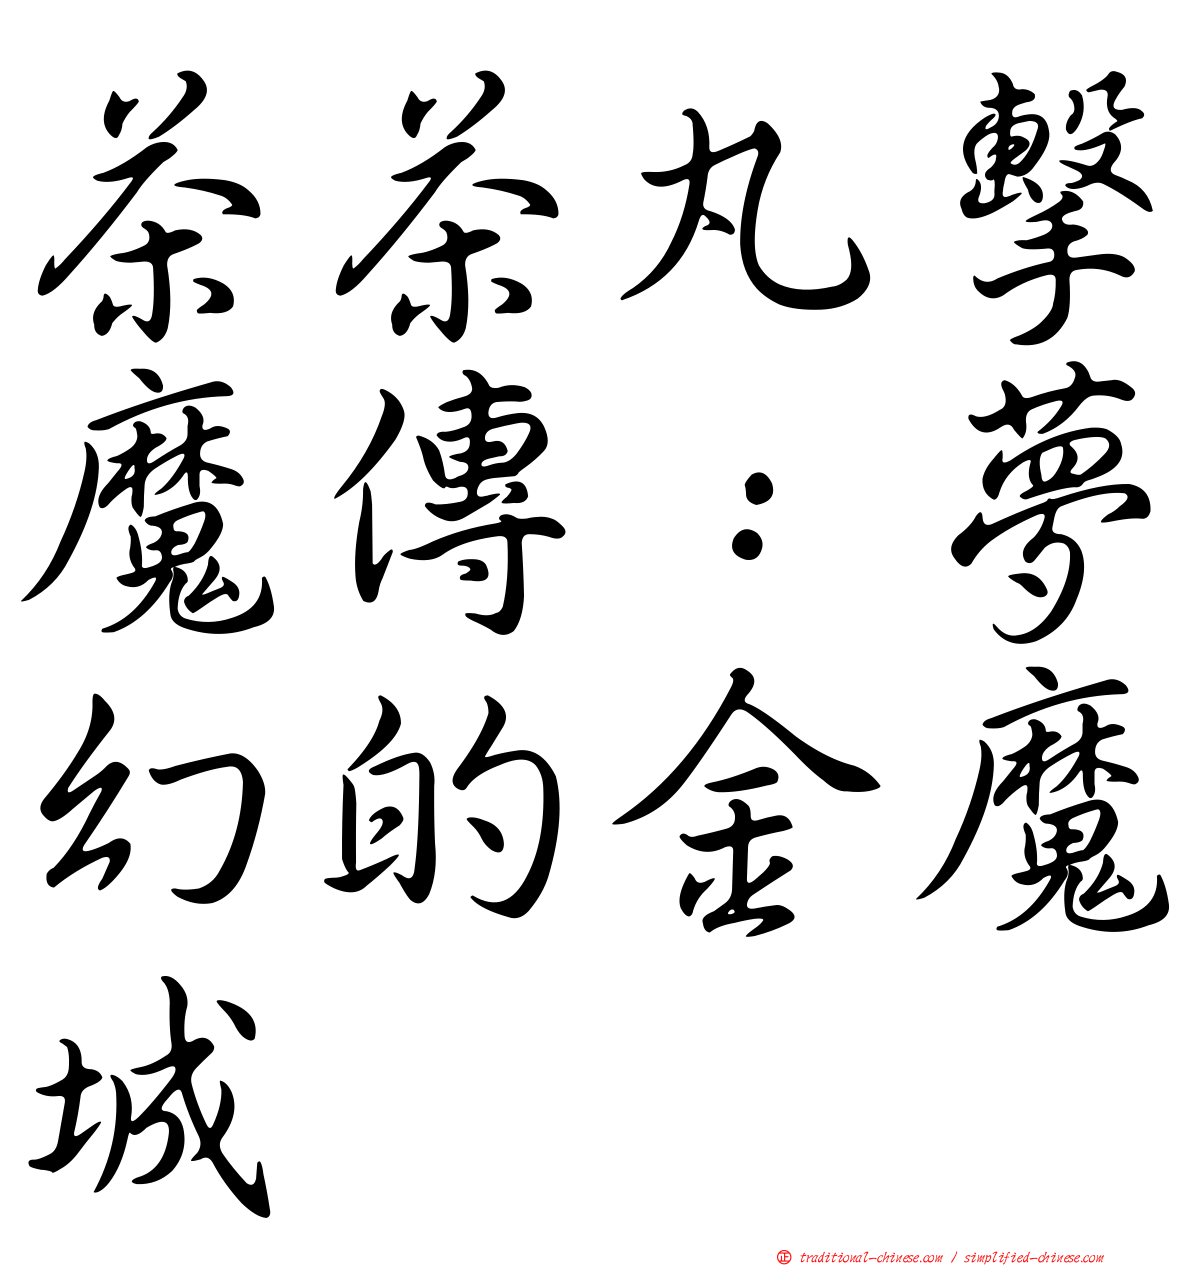 茶茶丸擊
魔傳：夢
幻的金魔
城
正 traditional-chinese.com / simplified-chinese.com